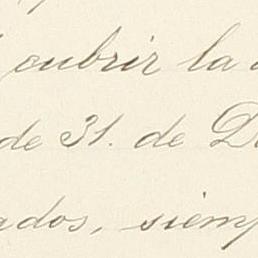 cubrir la
de 31. de
ados, siem